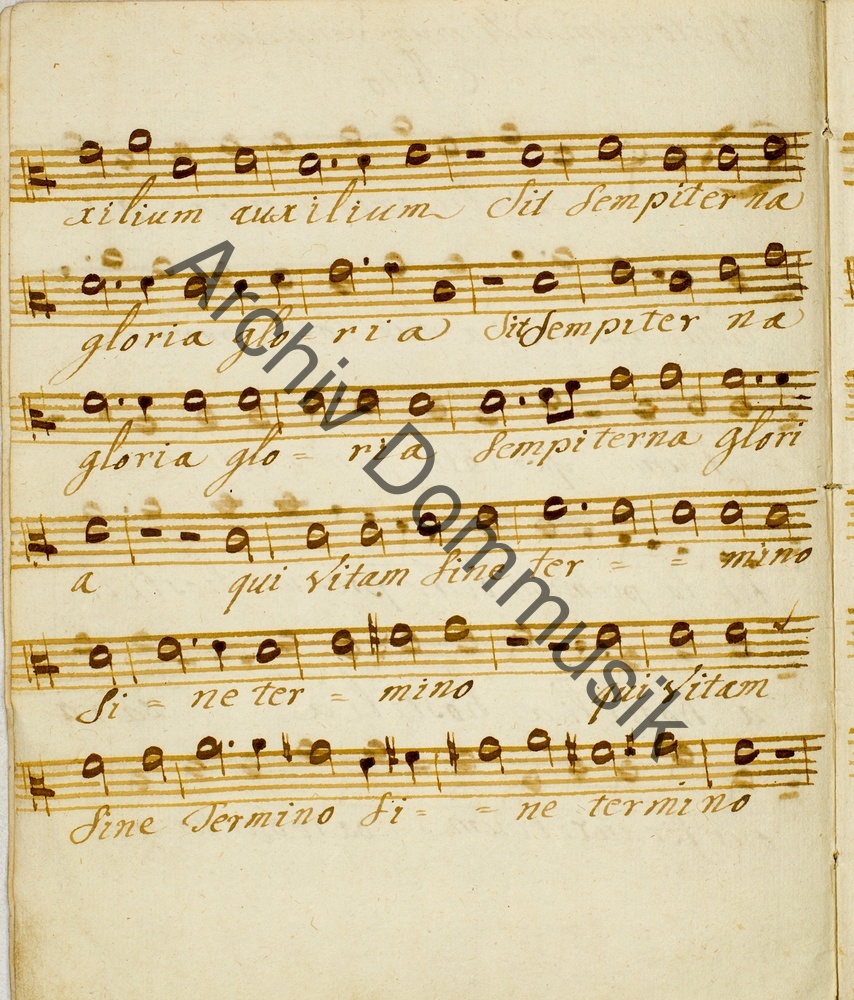 xilium auxilium Sit Sempiterna
gloria glo- ria Sit Sempiter na
gloria glo= ria Sempiterna glori
a qui Vitam Sine ter = = mino
Si = ne ter = mino qui Vitam
Sine Termino Si= = ne termino
Archiv Dommusik